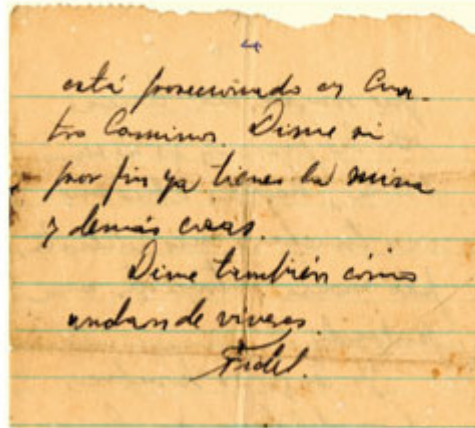 está posecionado en Cua-
tro Caminos. Dime si
por fin ya tienes la mina
y demás cosas.
Dime también cómo
andan de viveres.
Fidel.